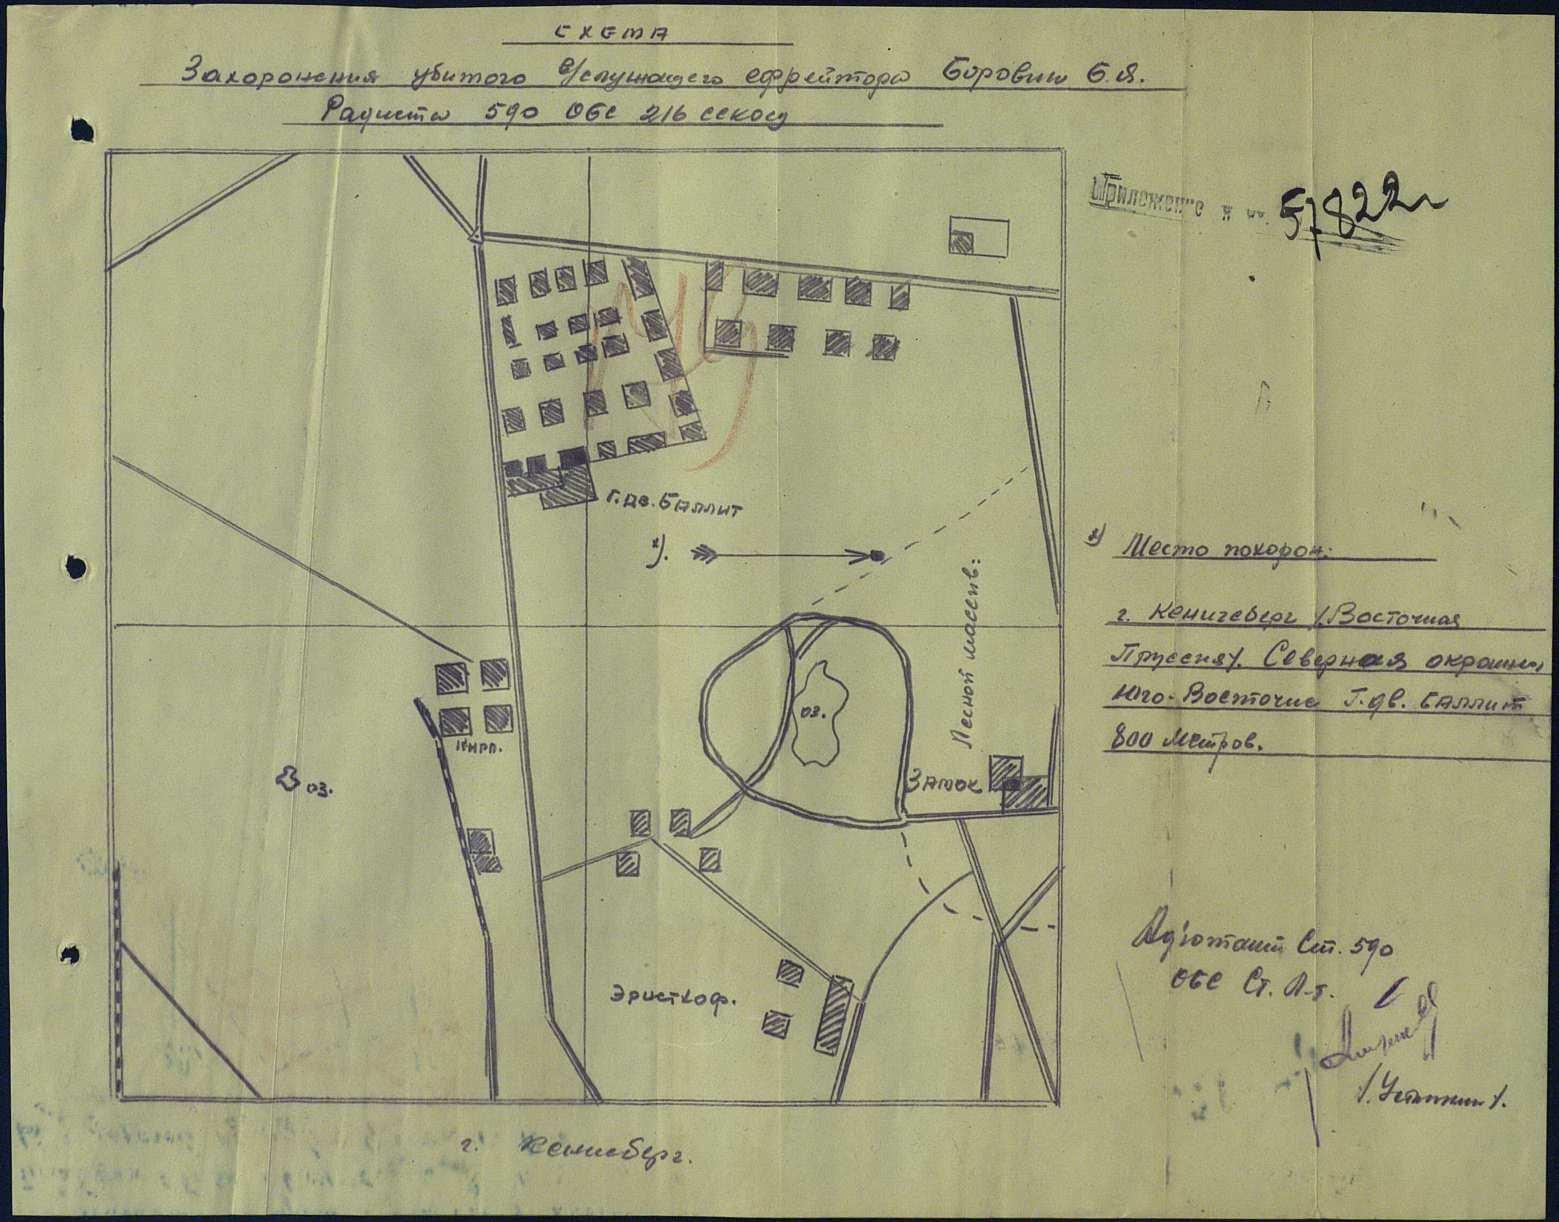 СХЕМА
Захоронения убитого в/служащего ефрейтора Боровик Б.Я.
Радиста 590 ОБС 216 секосд
Приложение к вх. 57822
Г.дв. Баллит
х).
Лесной массив:
оз.
Замок
Кирп.
оз.
Эристкоф.
г. Кенисберг.
х) Место похорон:
г. Кенигсберг /Восточная
Пруссия/. Северная окраина
Юго-Восточнее Г.дв. Баллит
800 метров.
Адъютант Ст. 590
ОБС Ст. Л-т.